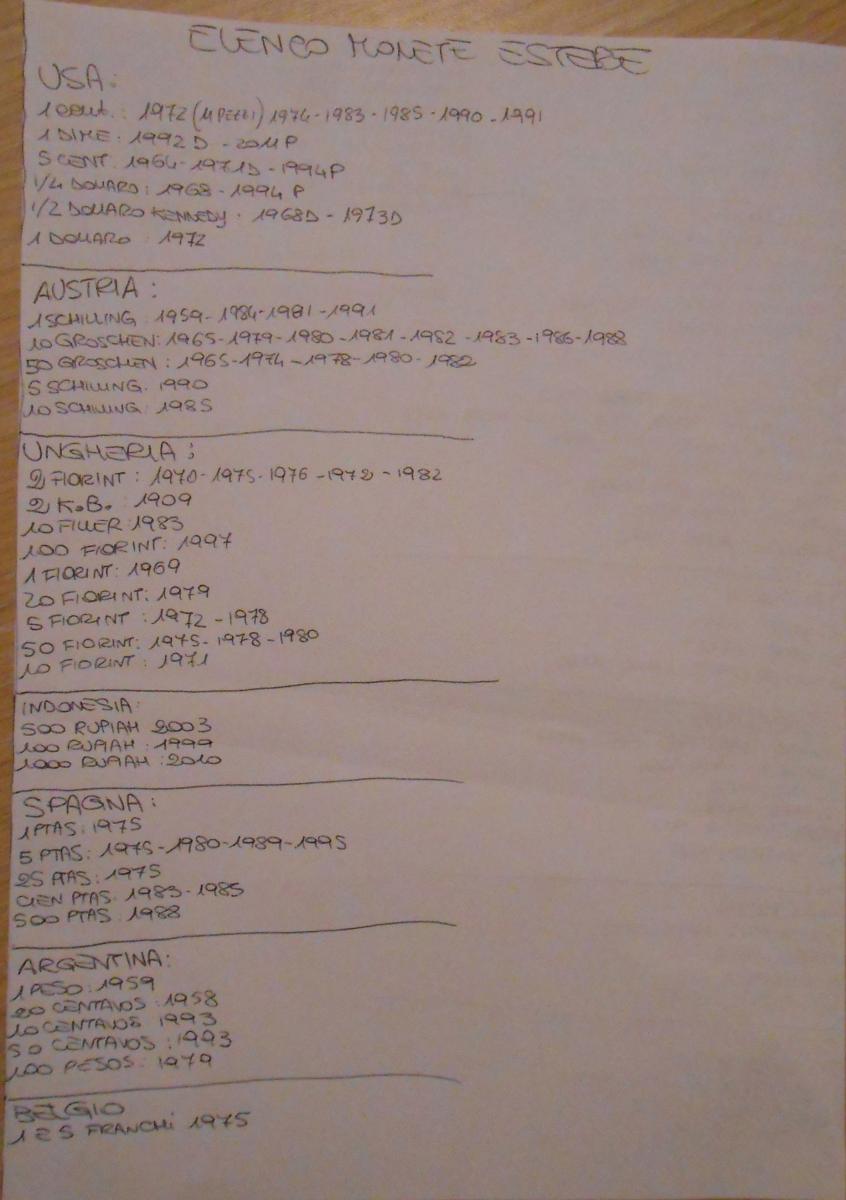 ELENCO MONETE ESTERE
USA:
1 cent.: 1972 (4 PEZZI) 1974-1983-1985-1990-1991
1 DIME: 1992D - 2011P
5 CENT. 1964-1971D-1994P
1/4 DOLLARO: 1968-1994 P
1/2 DOLLARO KENNEDY: 1968D - 1973D
1 DOLLARO: 1972
AUSTRIA:
1 SCHILLING: 1959-1984-1981-1991
10 GROSCHEN: 1965-1979-1980-1981-1982-1983-1986-1988
50 GROSCHEN: 1965-1974-1978-1980-1982
5 SCHILLING. 1990
10 SCHILLING: 1985
UNGHERIA:
2 FIORINT: 1970-1975-1976-1972-1982
2 K.B.: 1909
10 FILLER: 1983
100 FIORINT: 1997
1 FIORINT: 1969
20 FIORINT: 1979
5 FIORINT: 1972-1978
50 FIORINT: 1975-1978-1980
10 FIORINT: 1971
INDONESIA:
500 RUPIAH 2003
100 RUPIAH: 1999
1000 RUPIAH: 2010
SPAGNA:
1 PTAS: 1975
5 PTAS: 1975-1980-1989-1995
25 PTAS: 1975
CIEN PTAS. 1983-1985
500 PTAS: 1988
ARGENTINA:
1 PESO: 1959
20 CENTAVOS: 1958
10 CENTAVOS 1993
50 CENTAVOS: 1993
100 PESOS: 1979
BELGIO
1 E 5 FRANCHI 1975